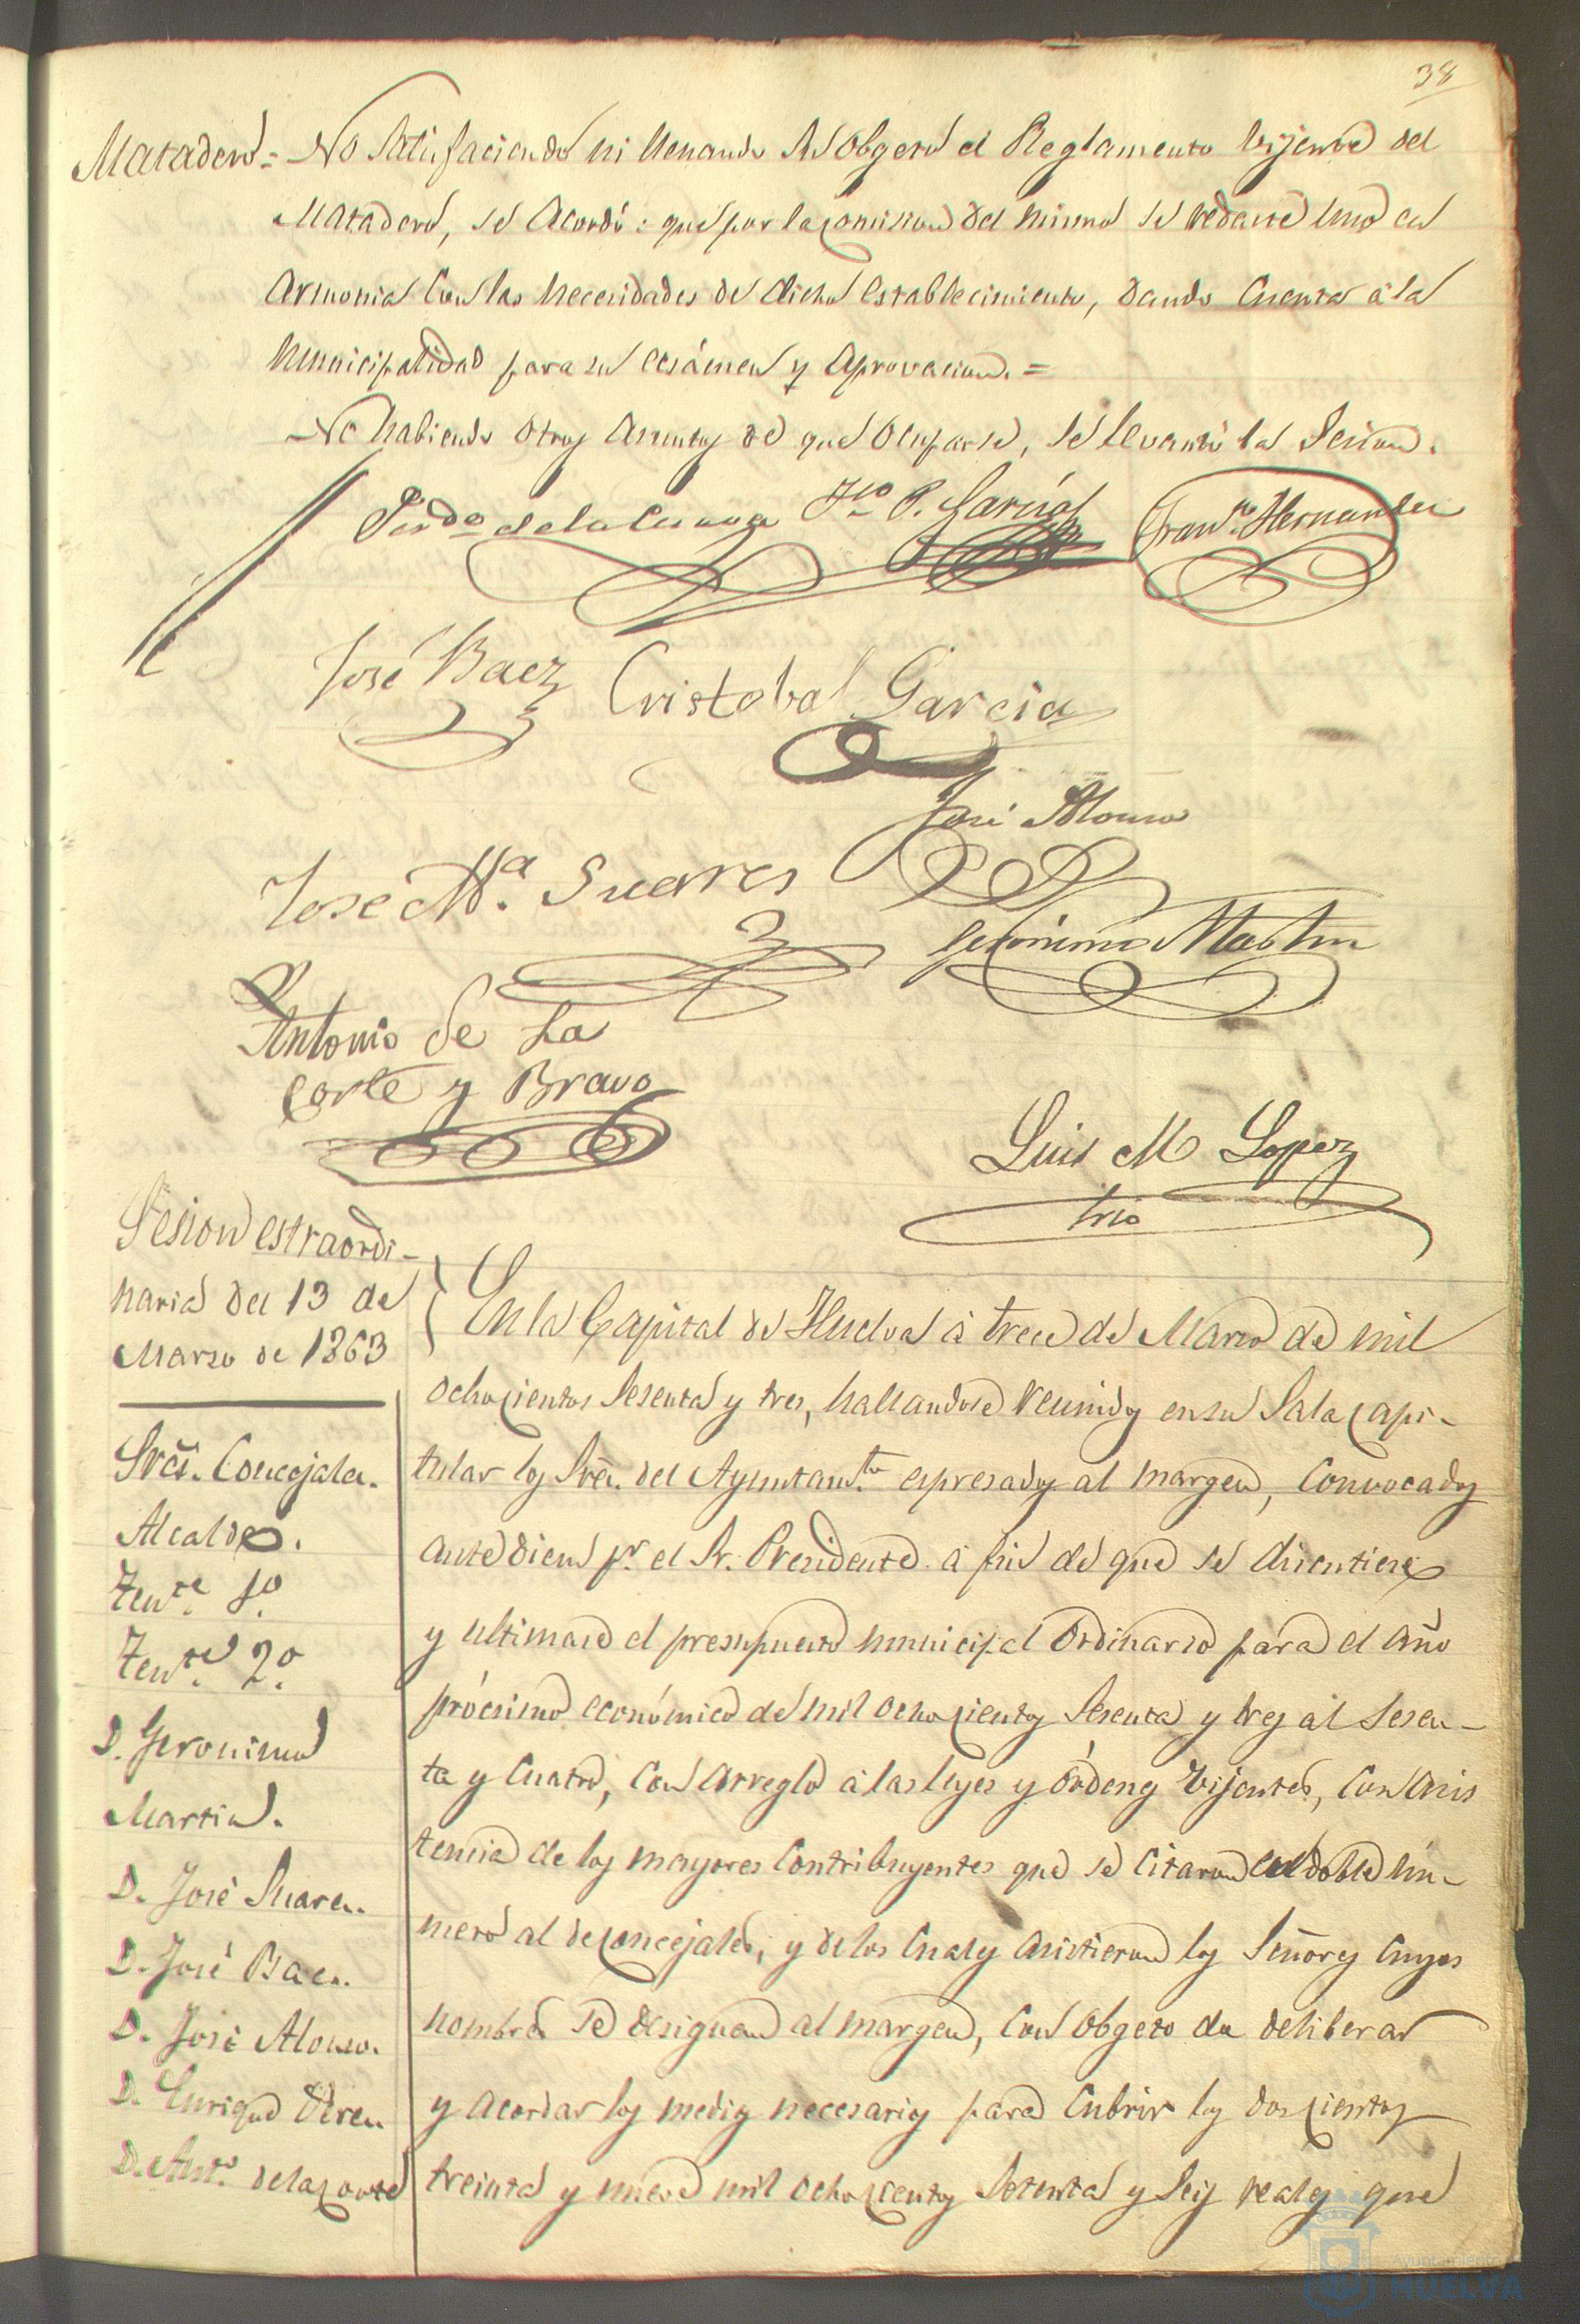 38
Matadero = No satisfaciendo ni llenando su obgeto el Reglamento vijente del
Matadero, se acordó: que por la comision del mismo se redacte uno en
armonia con las necesidades de dicho establecimiento, dando cuenta á la
Municipalidad para su ecsámen y aprovacion. =
No habiendo otros asuntos de que ocuparse, se levantó la Sesion.
de la Cueva Fco P. García Franco Hernandez
José Baez Cristobal Garcia
José Alonso
Jose Ma. Suares
Gerónimo Martin
Antonio de La
Corte y Bravo
Luis M Lopez
Srio
Sesion estraordi-
naria del 13 de
Marzo de 1863
Sres. Concejales.
Alcalde.
Tente. 1o.
Tente. 2o.
D. Geronimo
Martin.
D. José Suarez.
D. José Baez.
D. José Alonso.
D. Enrique Perez
D. Anto. de la Corte
En la Capital de Huelva á trece de Marzo de mil
ochocientos sesenta y tres, hallandose reunidos en su Sala capi-
tular los Sres. del Ayuntamto. espresados al margen, convocados
ante diem pr. el Sr. Presidente á fin de que se discutiese
y ultimase el presupuesto municipal ordinario para el año
prócsimo económico de mil ochocientos sesenta y tres al sesen-
ta y cuatro, con arreglo á las leyes y órdenes vijentes, con asis
tencia de los mayores contribuyentes que se citaron en doble nú-
mero al de concejales, y de los cuales asistieron los Señores cuyos
nombres se designan al margen, con obgeto de deliberar
y acordar los medios necesarios para cubrir los doscientos
treinta y nueve mil ochocientos setenta y seis reales que
Ayuntamiento
HUELVA